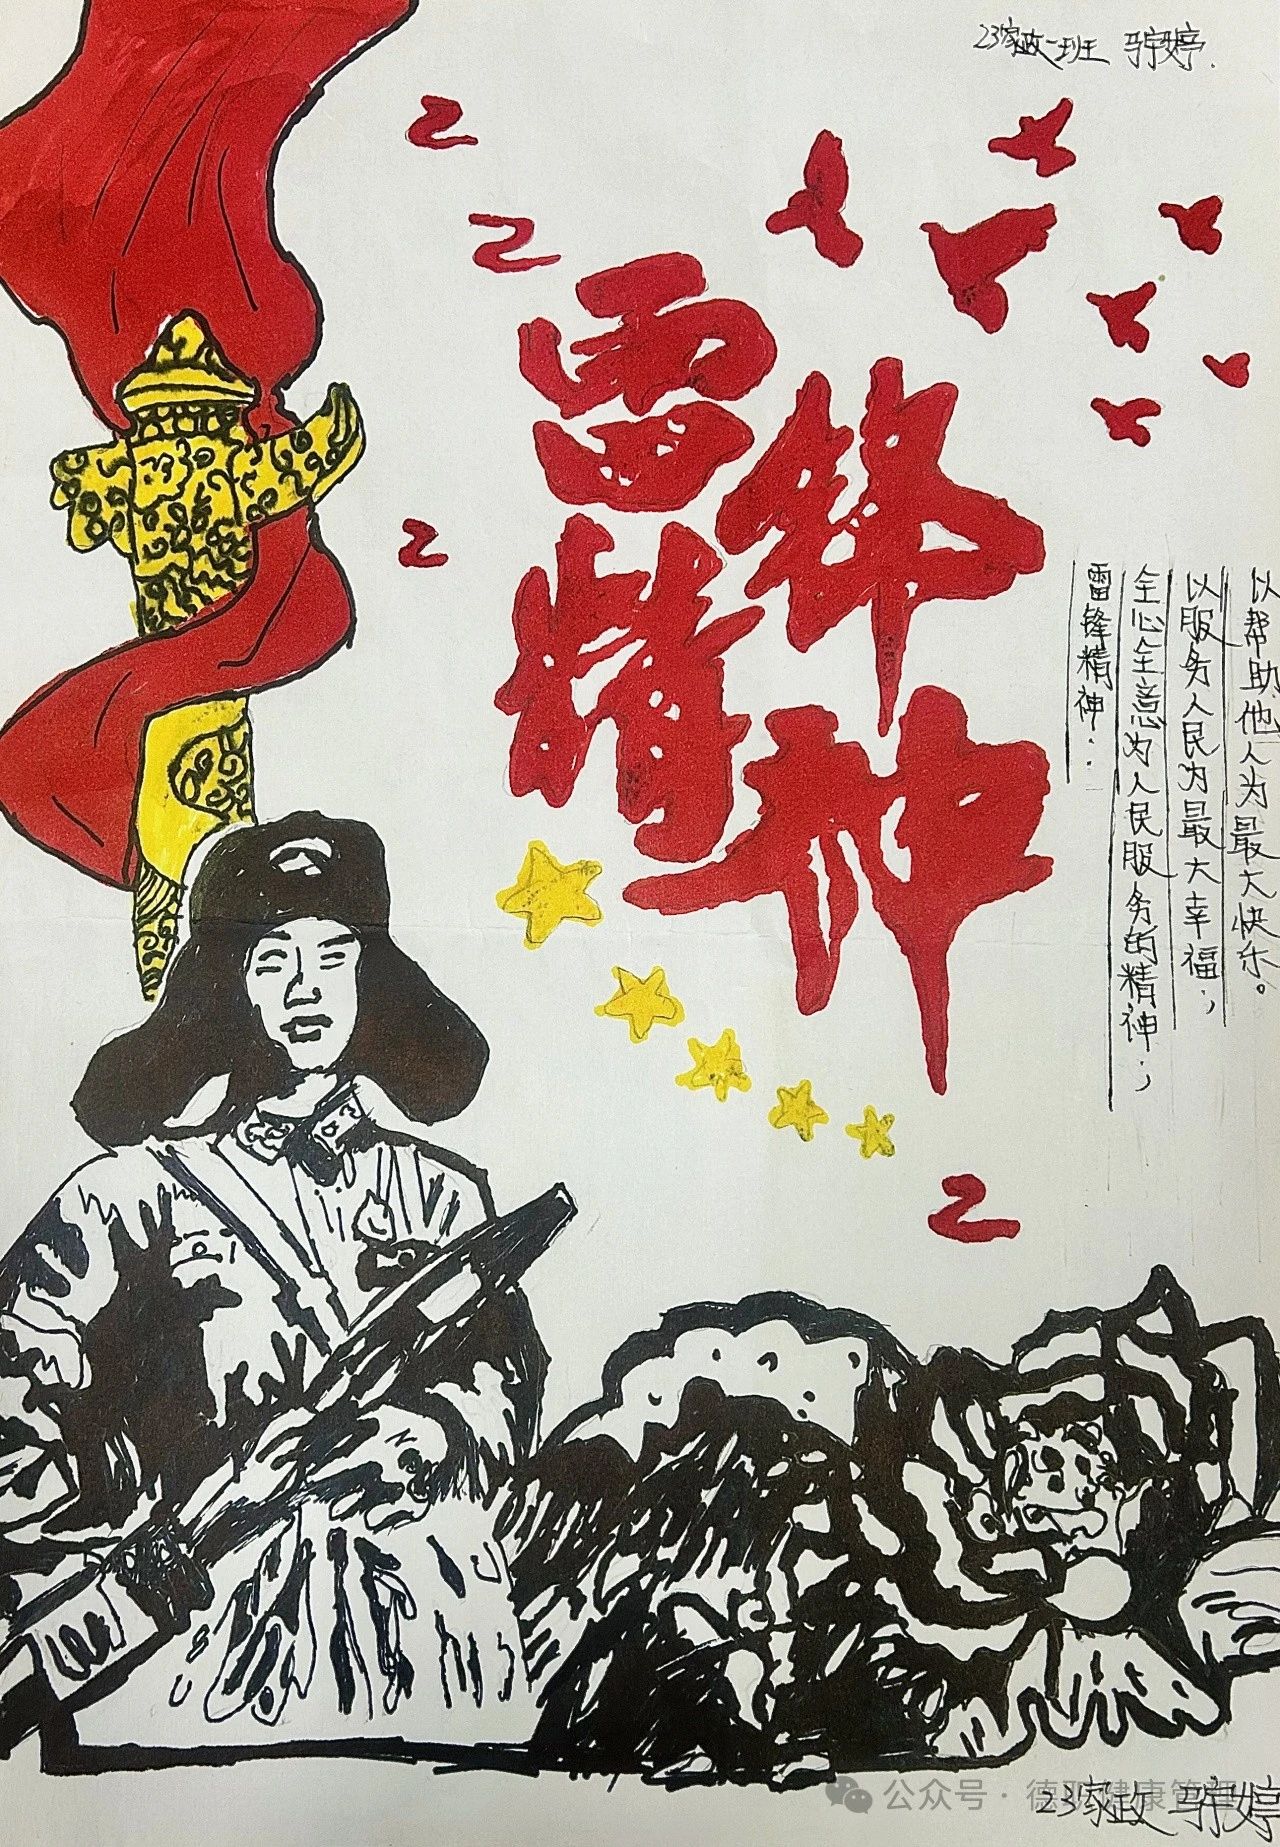 23家政一班 马宇婷.
雷锋
精神
以帮助他人为最大快乐。
以服务人民为最大幸福;
全心全意为人民服务的精神;
雷锋精神:
公众号·德职健康管理
23家政 马宇婷